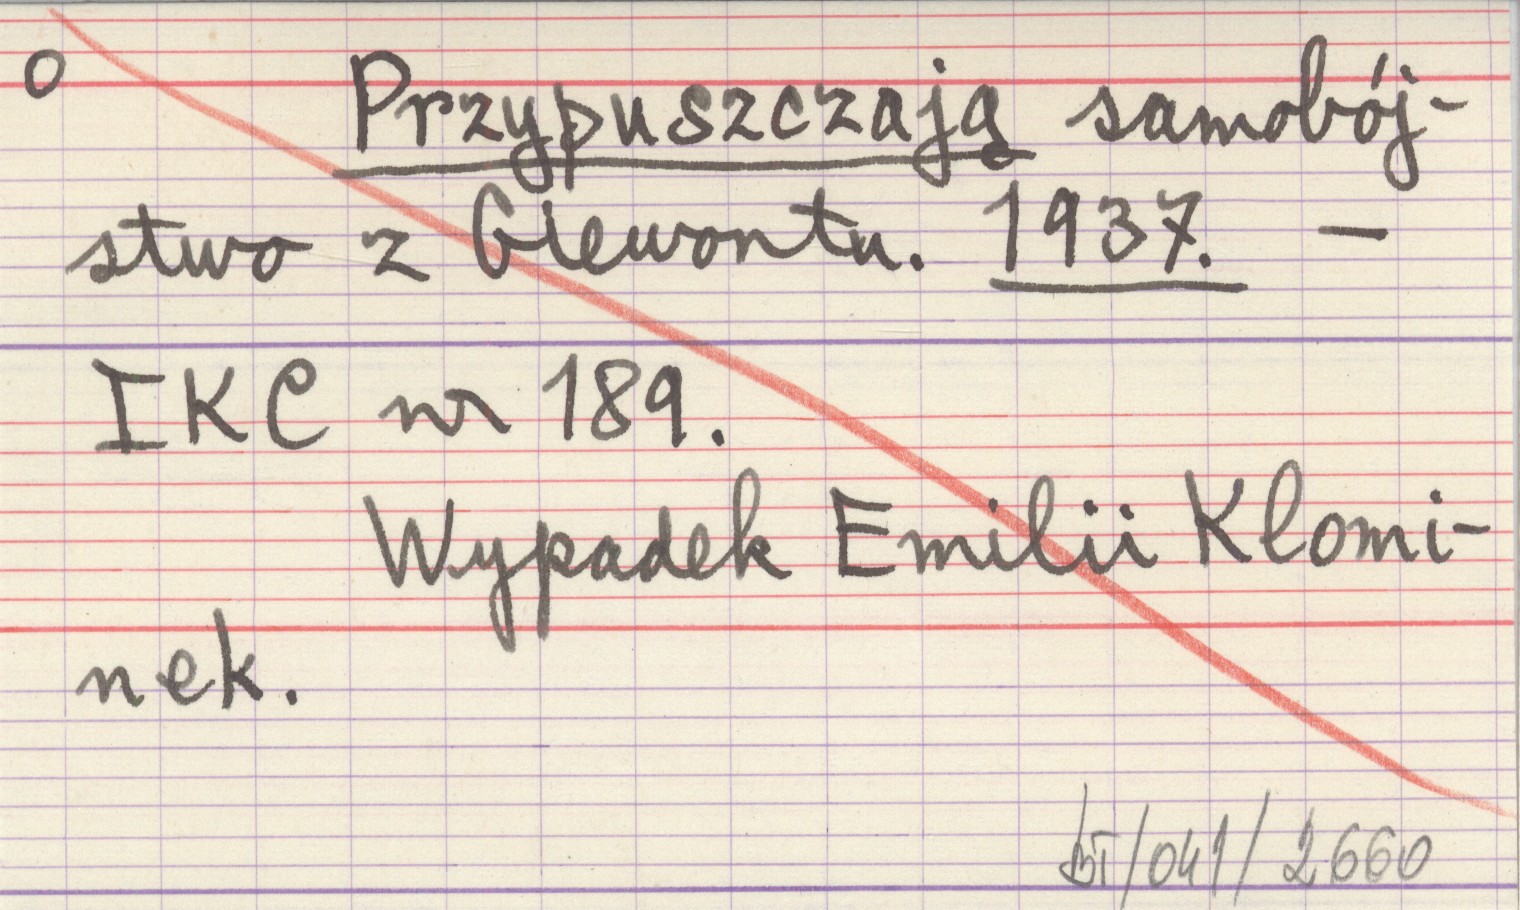 o Przypuszczają samobój-
stwo z Giewontu. 1937. —
IKC nr 189.
Wypadek Emilii Klomi-
nek.
BT/041/2660